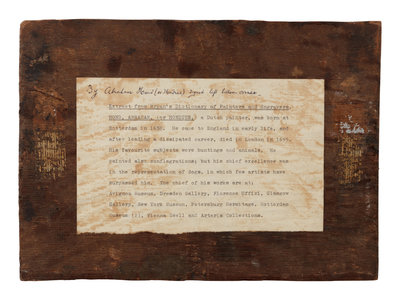 By Abraham Hond (or Hondius) signed left hand corner
Extract from Bryan's Dictionary of Painters and Engravers.
HOND, ABRAHAM, (or HONDIUS,) a Dutch painter, was born at
Rotterdam in 1638. He came to England in early life, and
after leading a dissipated career, died in London in 1695.
His favourite subjects were huntings and animals. He
painted also conflagrations; but his chief excellence was
in the representation of dogs, in which few artists have
surpassed him. The chief of his works are at:
Museum, Dresden Gallery, Florence Uffizi, Glasgow
Gallery, New York Museum, Petersburg Hermitage, Rotterdam
Museum (2), Vienna and Collections.